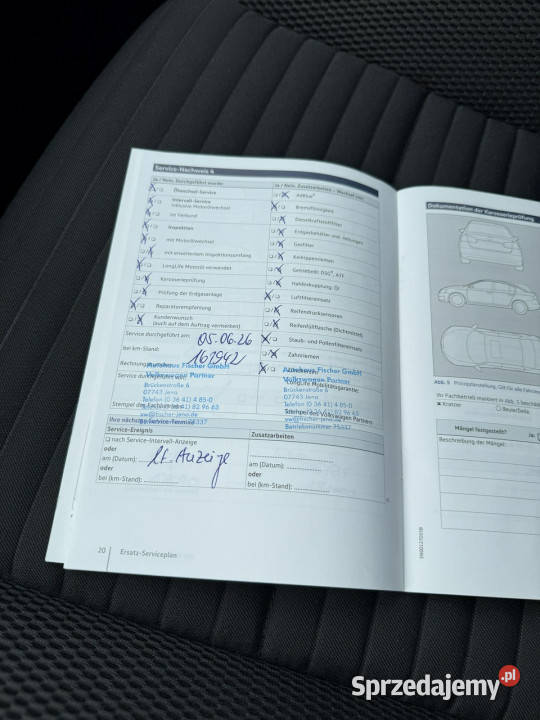 Service-Nachweis 6
Ja / Nein, Durchgeführt wurde:
Ölwechsel-Service
Intervall-Service
inklusive Motorölwechsel
im Verbund
Inspektion
mit Motorölwechsel
mit erweitertem Inspektionsumfang
LongLife Motoröl verwendet
Karosserieprüfung
Prüfung der Erdgasanlage
Reparaturempfehlung
Kundenwunsch
(auch auf dem Auftrag vermerken)
Service durchgeführt am: 05.06.26
bei km-Stand: 161942
Rechnungs
Autohaus Fischer GmbH
Volkswagen Partner
Service durchgeführt
Brückenstraße 6
07743 Jena
Telefon (0 36 41) 4 85-0
Stempel des Fachbetriebs
82 96 63
Ihre nächsten Service-Termine
Service-Ereignis
nach Service-Intervall-Anzeige
oder
am (Datum): lt. Anzeige
oder
bei (km-Stand):
Ja / Nein, Zusatzarbeiten - Wechsel von:
AdBlue®
Bremsflüssigkeit
Dieselkraftstofffilter
Erdgasbehälter und -leitungen
Gasfilter
Keilrippenriemen
Getriebeöl DSG®, ATF
Haldexkupplung
Luftfiltereinsatz
Reifendrucksensoren
Reifenfüllflasche (Dichtmittel)
Staub- und Pollenfiltereinsatz
Zahnriemen
Autohaus Fischer GmbH
LongLife Mobilitätsgarantie:
Volkswagen Partner
Brückenstraße 6
07743 Jena
Telefon (0 36 41) 4 85-0
Stempel des Volkswagen Partners
Betriebsnummer
Zusatzarbeiten
am (Datum):
oder
bei (km-Stand):
20 Ersatz-Serviceplan
Dokumentation der Karosserieprüfung
Abb. 5 Prinzipdarstellung. Gilt für alle Fahrzeug
Ihr Fachbetrieb markiert in Abb. 5 Beschädi
Kratzer
Beule/Delle
Mängel festgestellt?
Ja:
Beschreibung der Mängel:
Sprzedajemy.pl